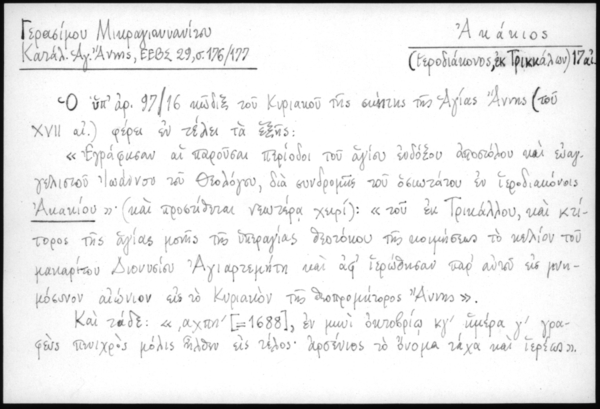 Γερασίμου Μικραγιαννανίτου
Κατάλ. Ἁγ. Ἄννης, ΕΕΒΣ 29, σ. 176/177
Ἀκάκιος
(ἱεροδιάκονος, ἐκ Τρικκάλων) 17 αἰ.
Ὁ ὑπ' ἀρ. 97/16 κῶδιξ τοῦ Κυριακοῦ τῆς σκήτης τῆς Ἁγίας Ἄννης (τοῦ
XVII αἰ.) φέρει ἐν τέλει τὰ ἑξῆς:
« Ἐγράφησαν αἱ παροῦσαι περίοδοι τοῦ ἁγίου ἐνδόξου ἀποστόλου καὶ εὐαγ-
γελιστοῦ Ἰωάννου τοῦ Θεολόγου, διὰ συνδρομῆς τοῦ ὁσιωτάτου ἐν ἱεροδιακόνοις
Ἀκακίου » · (καὶ προστίθεται νεωτέρᾳ χειρί): « τοῦ ἐκ Τρικάλλου, καὶ κτί-
τορος τῆς ἁγίας μονῆς τῆς ὑπεραγίας θεοτόκου τῆς κοιμήσεως τὸ κελλίον τοῦ
μακαρίτου Διονυσίου Ἁγιαρτεμήτη καὶ ἀφιερώθησαν παρ' αὐτοῦ εἰς μνη-
μόσυνον αἰώνιον εἰς τὸ Κυριακὸν τῆς θεοπρομήτορος Ἄννης ».
Καὶ τάδε: « ͵αχπη' [= 1688], ἐν μηνὶ ὀκτοβρίῳ κγ' ἡμέρᾳ γ' γρα-
φεὺς πενιχρὸς μόλις ἦλθεν εἰς τέλος· ἀρσένιος τὸ ὄνομα τάχα καὶ ἱερέως ».